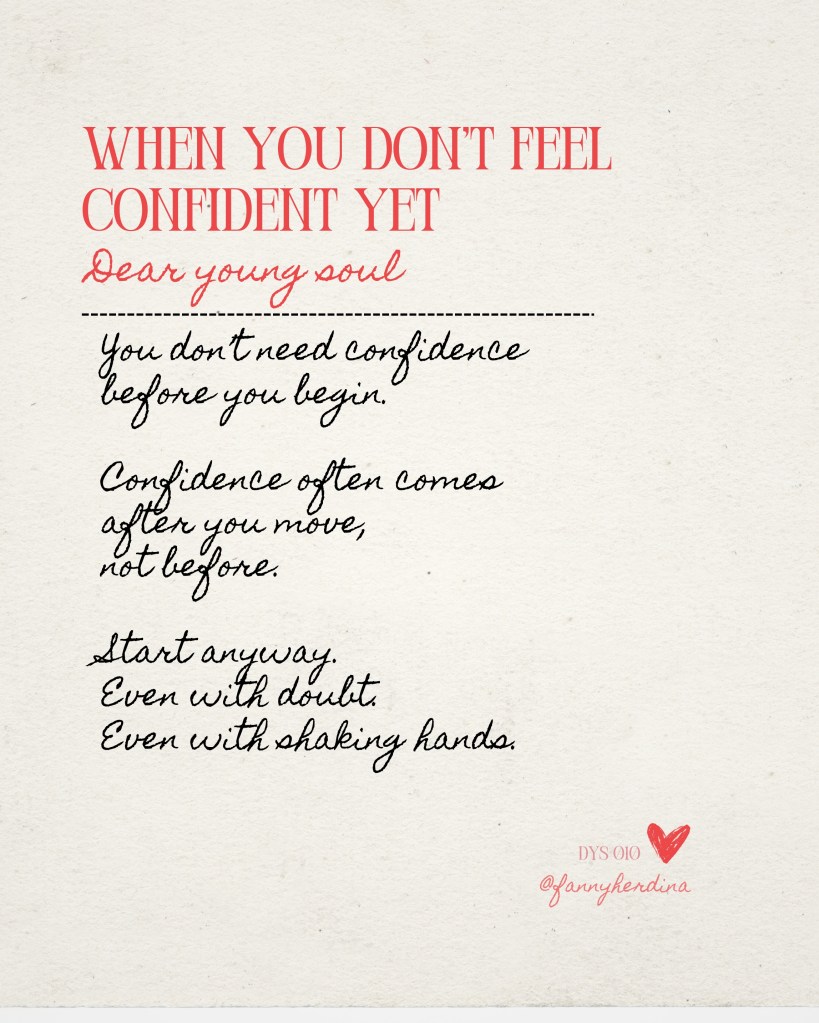 WHEN YOU DON'T FEEL
CONFIDENT YET
Dear young soul
You don't need confidence
before you begin.
Confidence often comes
after you move,
not before.
Start anyway.
Even with doubt.
Even with shaking hands.
DYS 010
@fannyherdina